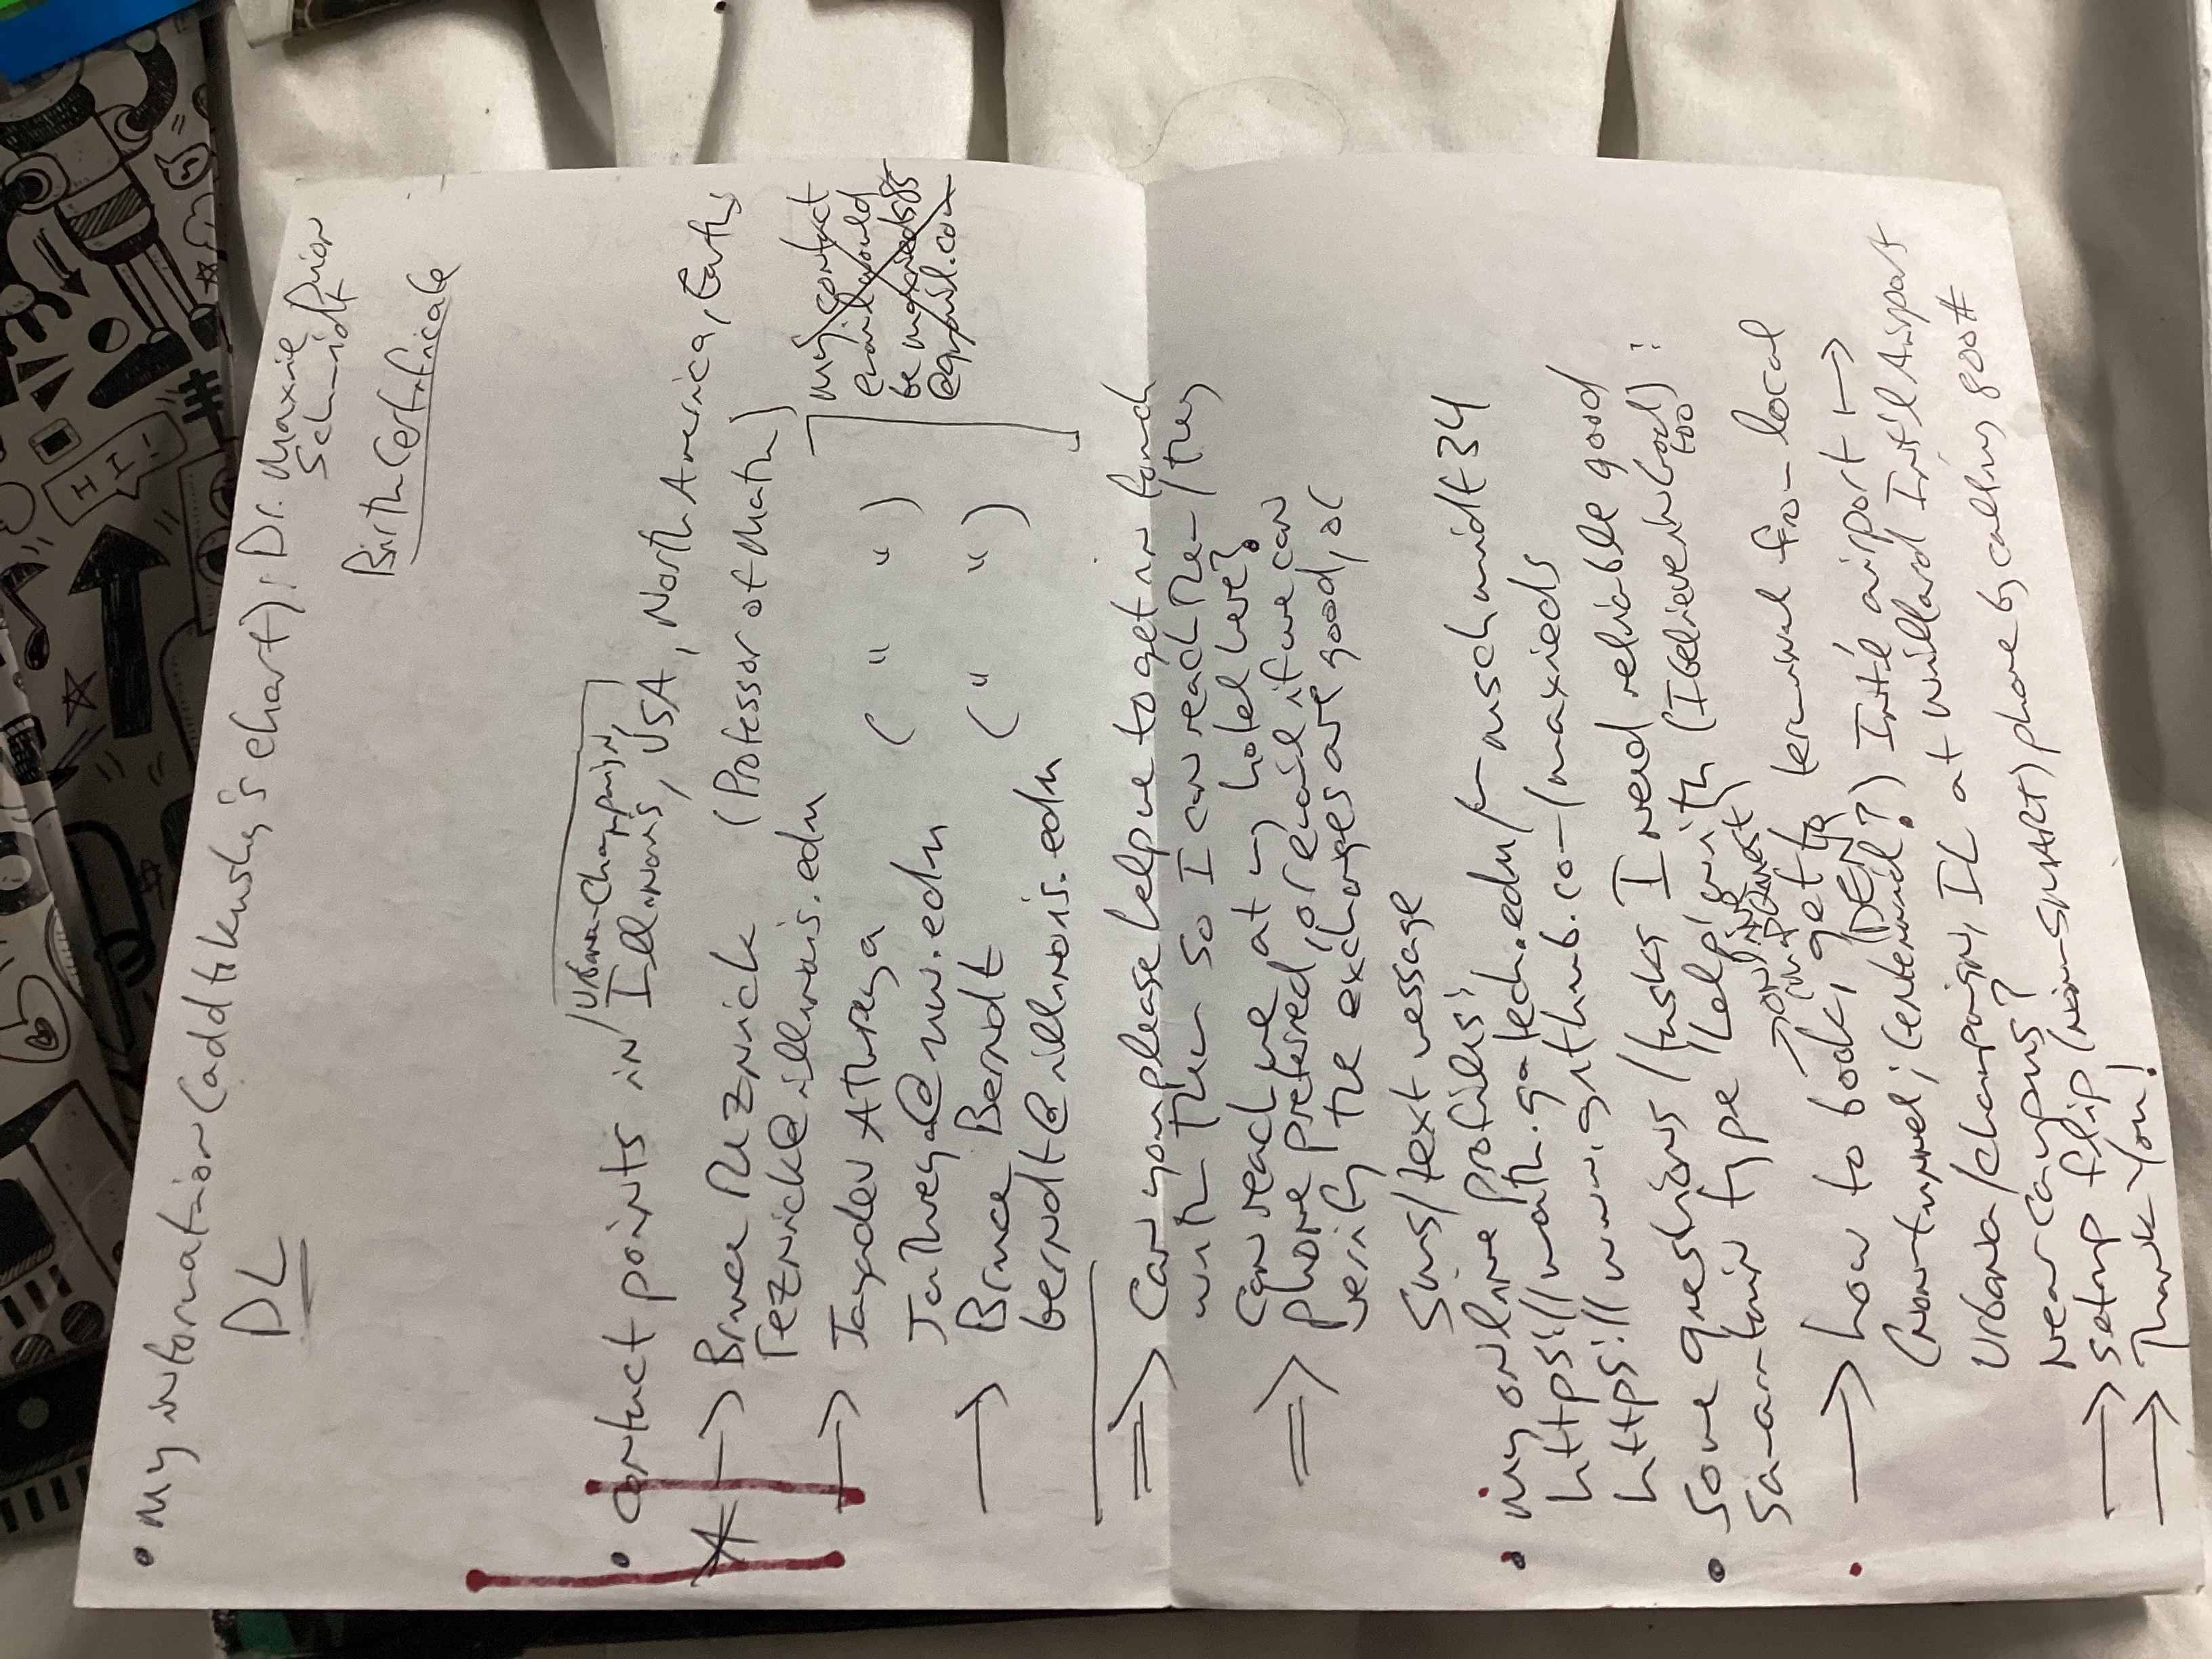 • My information (add to Kushy's chart): Dr. Maxie Dion Schmidt
DL
Birth Certificate
• contact points in / Urbana-Champaign,
Illinois, USA, North America, Earth
→ Bruce Reznick (Professor of Math)
reznick@illinois.edu
→ Jayadev Athreya ( " " )
jathreya@uw.edu
→ Bruce Berndt ( " " )
berndt@illinois.edu
my contact
email would
be maxieds85
@gmail.com
⇒ Can you please help me to get in touch
with them so I can reach me / they
can reach me at my hotel here?
⇒ phone preferred, or email if we can
verify the exchanges are good, or
SMS/text message
• my online profiles:
https://math.gatech.edu/~mschmidt34
https://www.github.com/maxieds
• Some questions / tasks I need reliable good
samaritan type help with (I believe in God too):
→ how to book, get to terminal from local
(non tunnel; external?) (DEN) Int'l airport ↦
Urbana/Champaign, IL at Willard Int'l Airport
near campus?
→ setup flip (non-SMART) phone by calling 800#
→ Thank you!